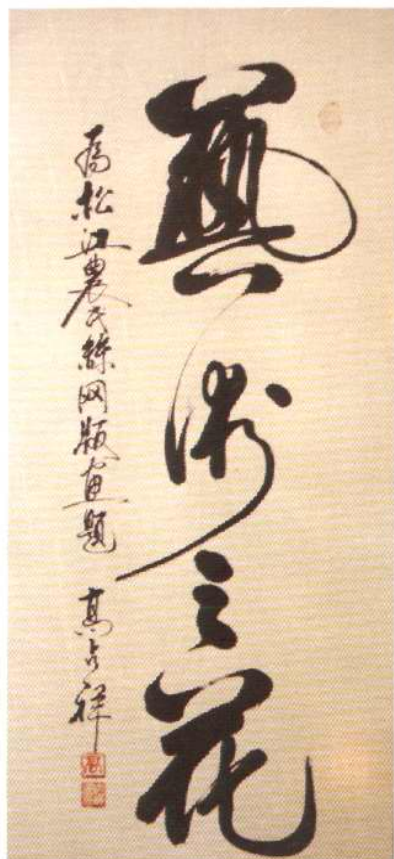 藝術之花
為松江農民絲网版画題 高占祥